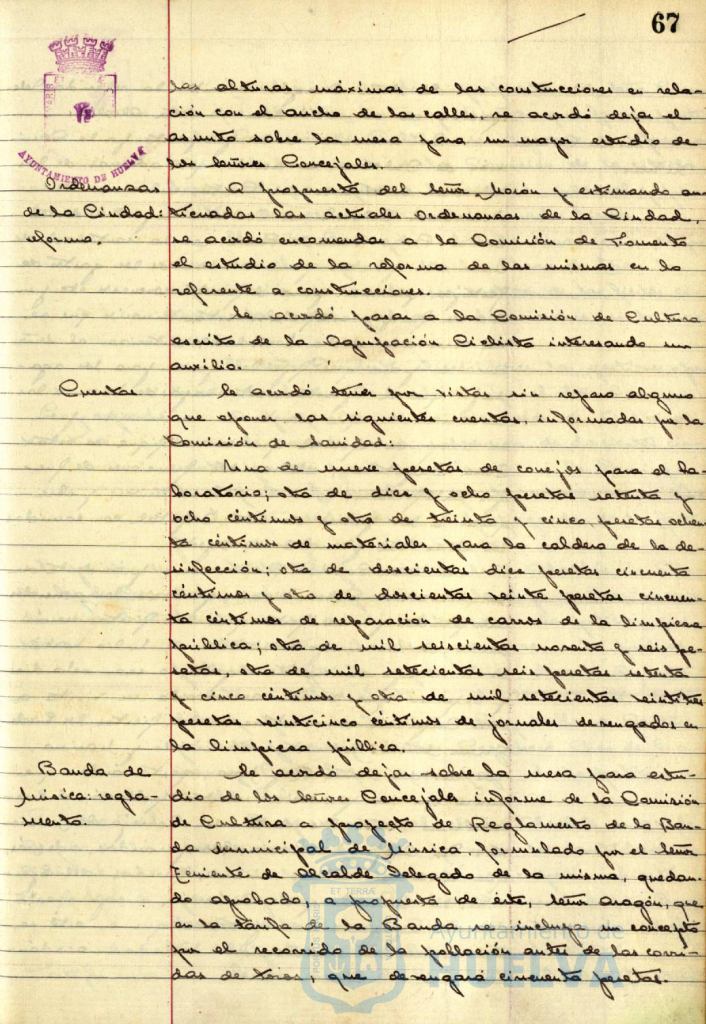 67
AYUNTAMIENTO DE HUELVA
las alturas máximas de las construcciones en rela-
ción con el ancho de las calles, se acordó dejar el
asunto sobre la mesa para un mayor estudio de
los señores Concejales.
Ordenanzas
de la Ciudad:
reforma.
A propuesta del señor Morón y estimando an-
ticuadas las actuales Ordenanzas de la Ciudad,
se acordó encomendar a la Comisión de Fomento
el estudio de la reforma de las mismas en lo
referente a construcciones.
Se acordó pasar a la Comisión de Cultura
escrito de la Agrupación Ciclista interesando un
auxilio.
Cuentas
Se acordó tener por vistas sin reparo alguno
que oponer las siguientes cuentas, informadas por la
Comisión de Sanidad:
Una de nueve pesetas de conejos para el La-
boratorio; otra de diez y ocho pesetas setenta y
ocho céntimos y otra de treinta y cinco pesetas ochen-
ta céntimos de materiales para la caldera de la de-
sinfección; otra de doscientas diez pesetas cincuenta
céntimos y otra de doscientas veinte pesetas cincuen-
ta céntimos de reparación de carros de la limpieza
pública; otra de mil seiscientas noventa y seis pe-
setas, otra de mil setecientas seis pesetas setenta
y cinco céntimos y otra de mil setecientas veintitres
pesetas veinticinco céntimos de jornales devengados en
la limpieza pública.
Banda de
Música: regla-
mento.
Se acordó dejar sobre la mesa para estu-
dio de los señores Concejales informe de la Comisión
de Cultura a proyecto de Reglamento de la Ban-
da municipal de Música, formulado por el señor
Teniente de Alcalde Delegado de la misma, quedan-
do aprobado, a propuesta de éste, señor Aragón, que
en la tarifa de la Banda se incluya un concepto
por el recorrido de la población antes de las corri-
das de toros, que devengará cincuenta pesetas.
Ayuntamiento de
HUELVA